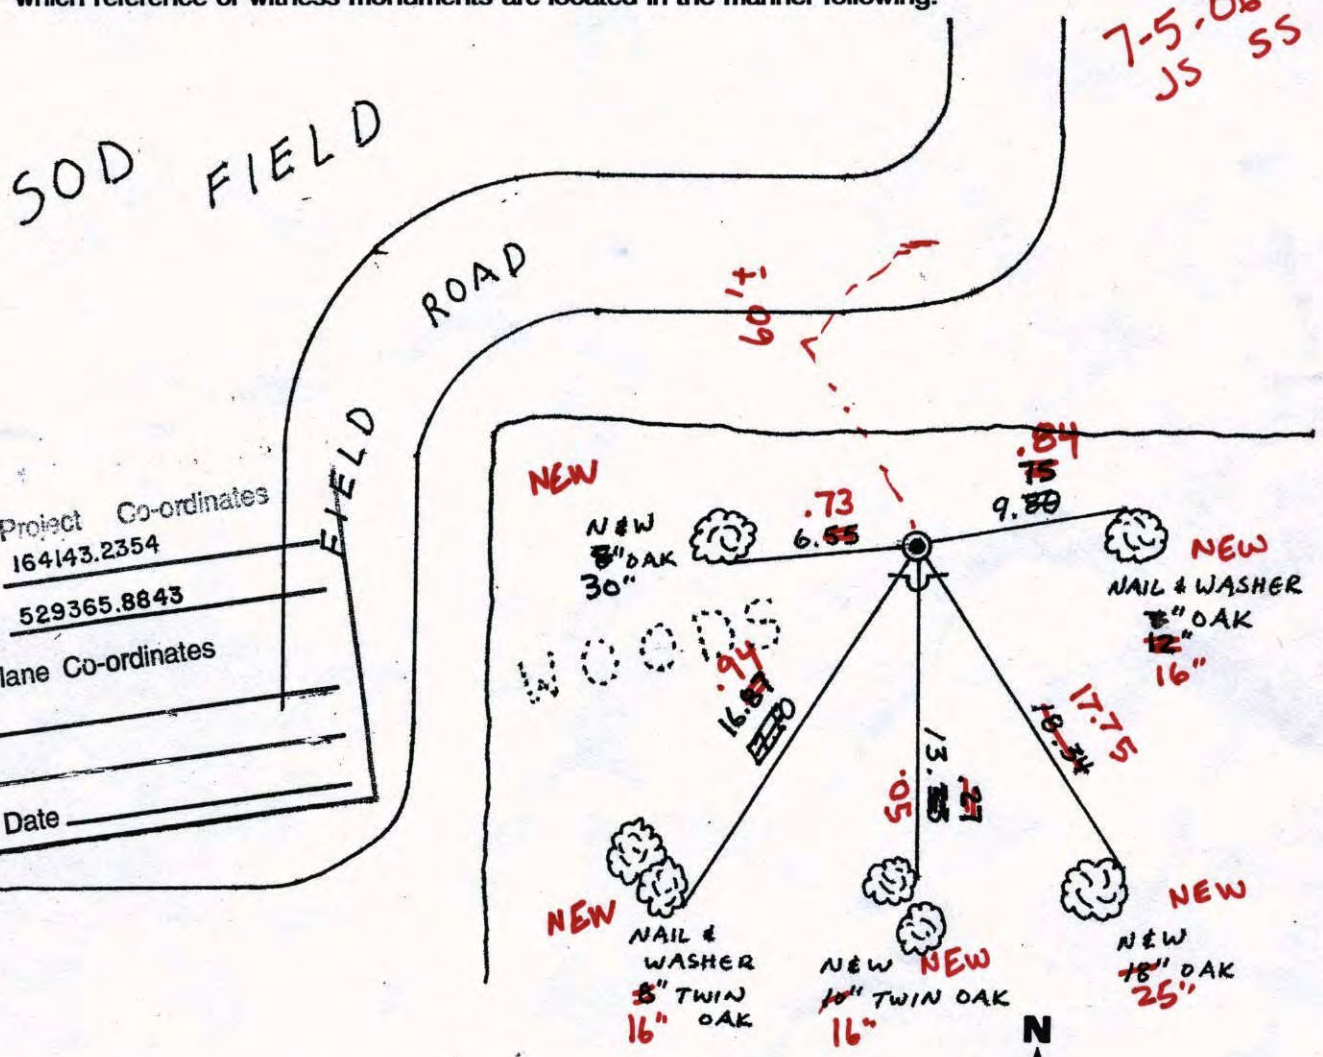 which reference or witness monuments are located in the manner following:
7-5-06
JS SS
SOD FIELD
FIELD ROAD
60'±
Project Co-ordinates
164143.2354
529365.8843
lane Co-ordinates
Date
NEW
N&W
8" OAK
30"
.73
6.55
.84
75
9.80
NEW
NAIL & WASHER
8" OAK
12"
16"
WOODS
.94
16.87
13.
.27
.05
18.34
17.75
NEW
NAIL &
WASHER
8" TWIN
16" OAK
N&W NEW
10" TWIN OAK
16"
NEW
N&W
18" OAK
25"
N